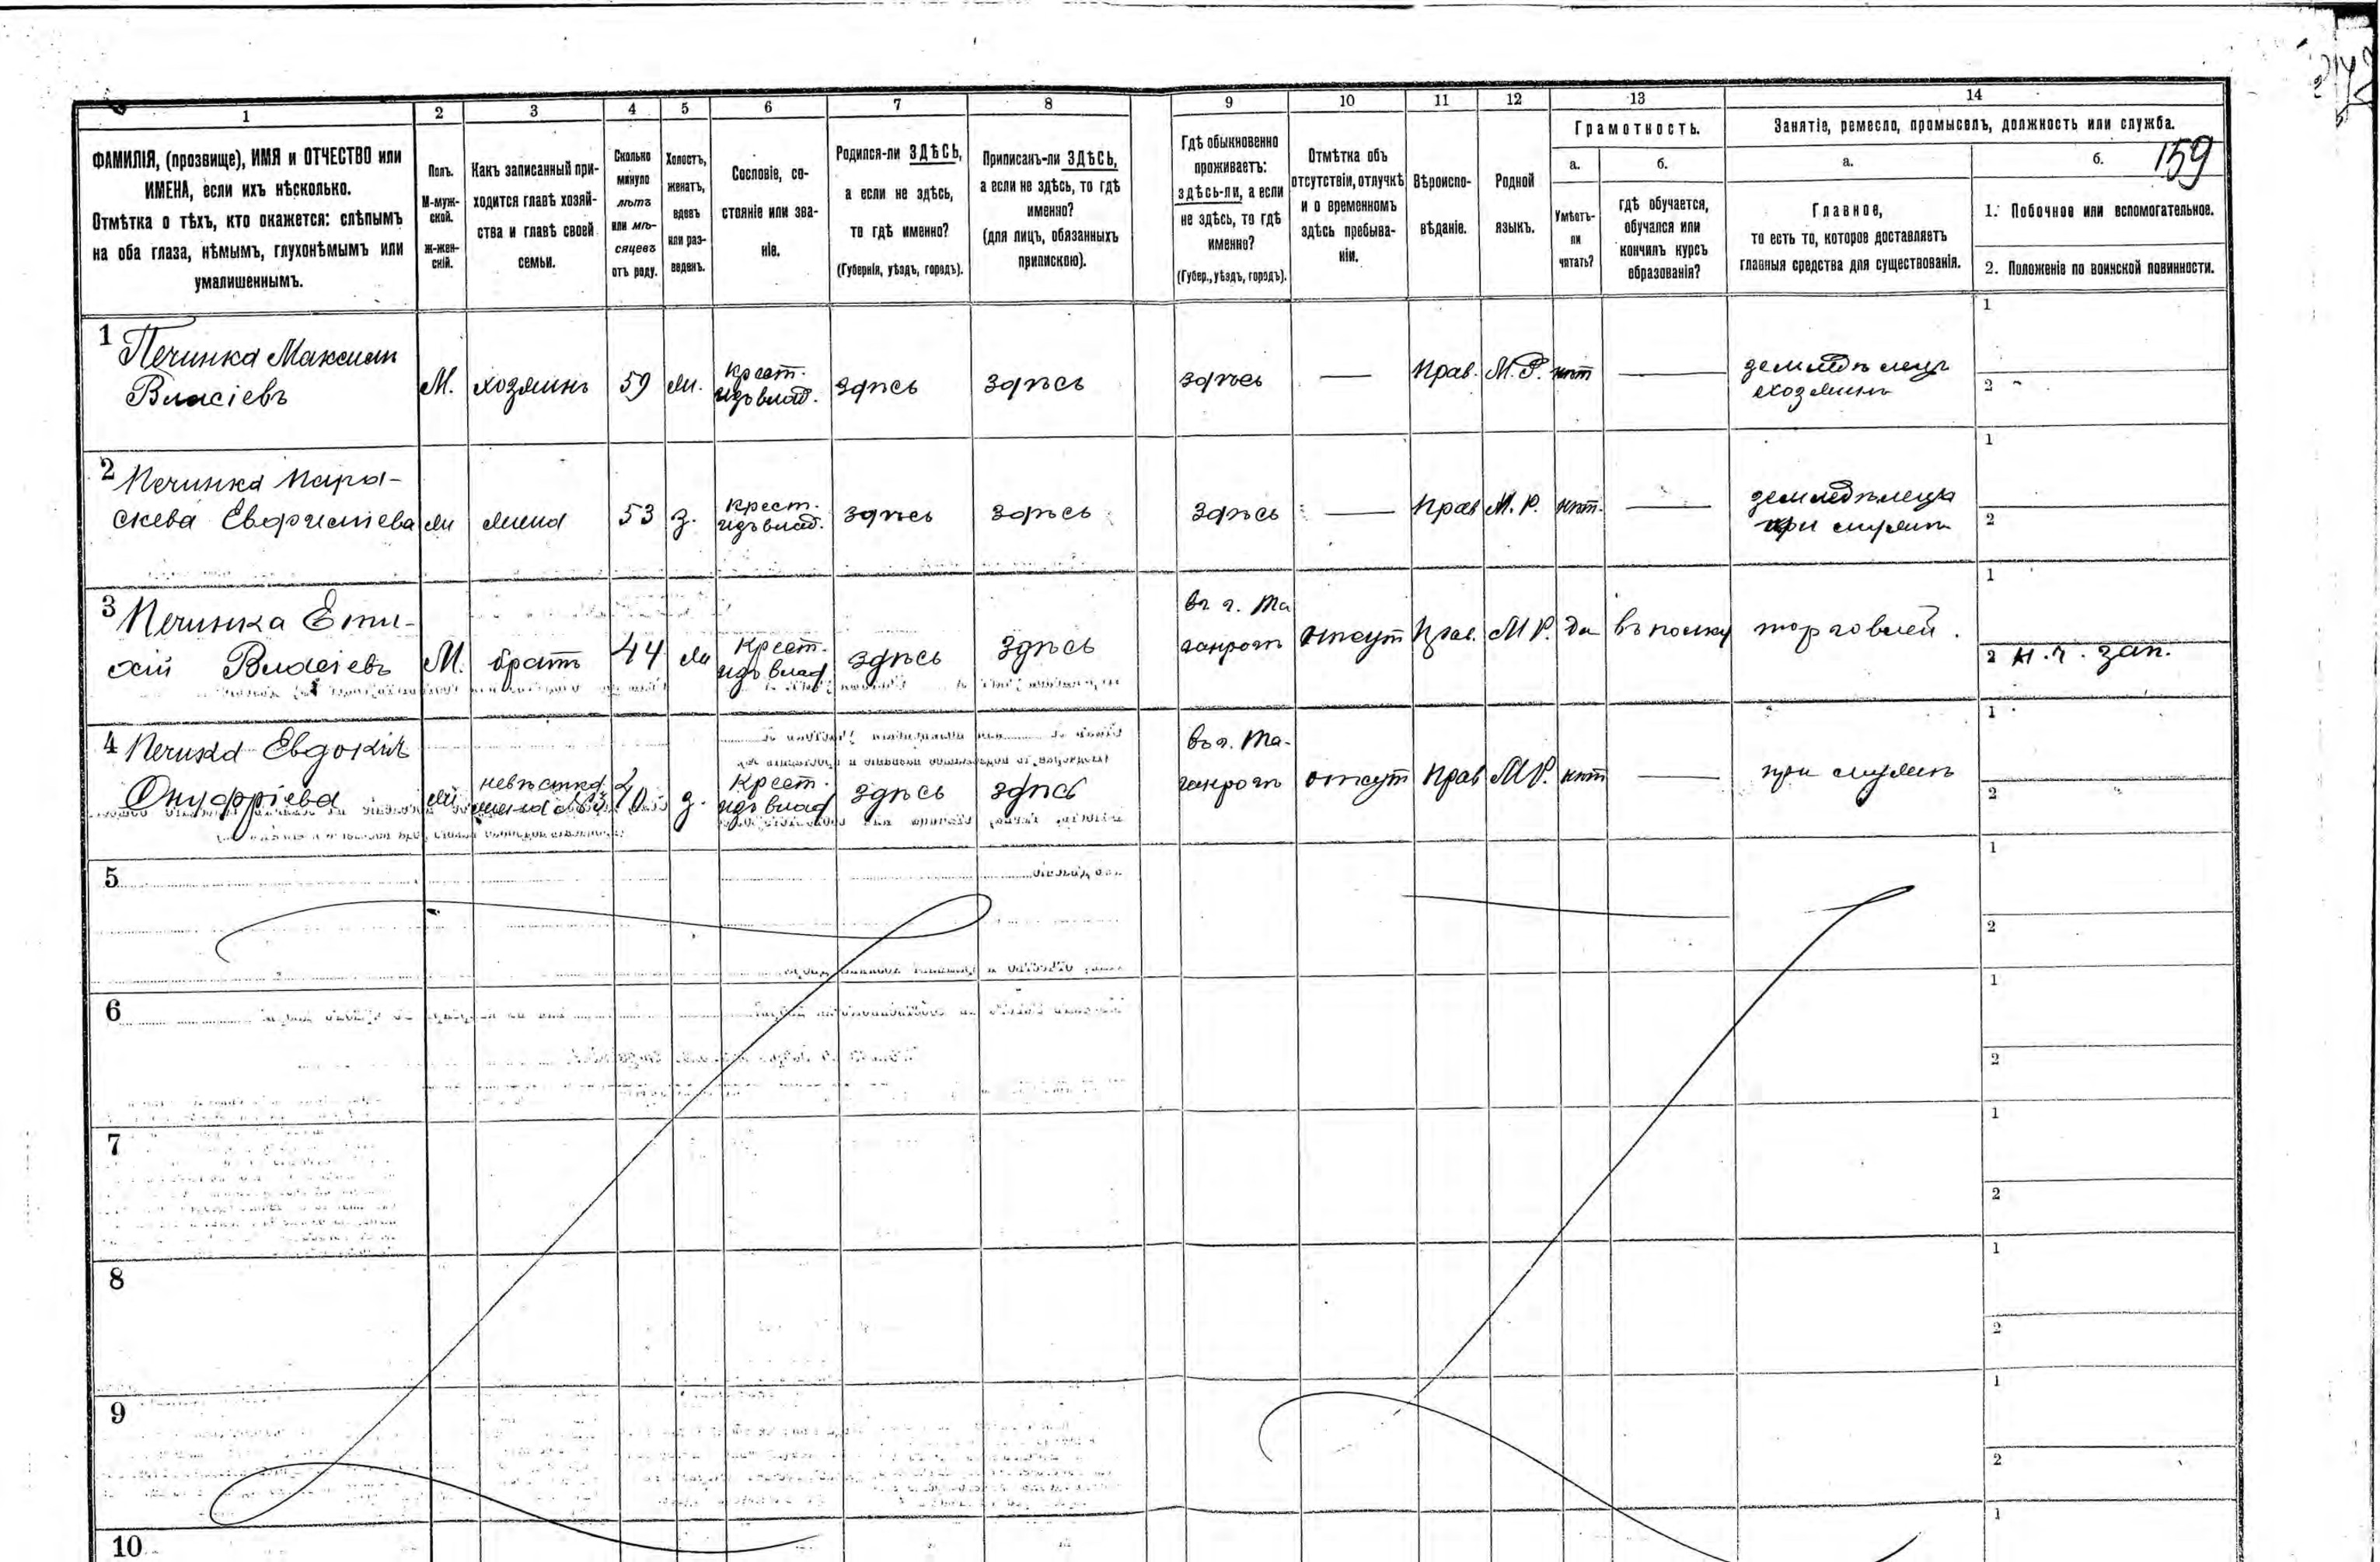 159
1 2 3 4 5 6 7 8 9 10 11 12 13 14
ФАМИЛІЯ, (прозвище), ИМЯ и ОТЧЕСТВО или
ИМЕНА, если ихъ нѣсколько.
Отмѣтка о тѣхъ, кто окажется: слѣпымъ
на оба глаза, нѣмымъ, глухонѣмымъ или
умалишеннымъ.
Полъ.
М-муж-
ской.
Ж-жен-
скій.
Какъ записанный при-
ходится главѣ хозяй-
ства и главѣ своей
семьи.
Сколько
минуло
лѣтъ
или мѣ-
сяцевъ
отъ роду.
Холостъ,
женатъ,
вдовъ
или раз-
веденъ.
Сословіе, со-
стояніе или зва-
ніе.
Родился-ли ЗДѢСЬ,
а если не здѣсь,
то гдѣ именно?
(Губернія, уѣздъ, городъ).
Приписанъ-ли ЗДѢСЬ,
а если не здѣсь, то гдѣ
именно?
(для лицъ, обязанныхъ
припискою).
Гдѣ обыкновенно
проживаетъ:
здѣсь-ли, а если
не здѣсь, то гдѣ
именно?
(Губер., уѣздъ, городъ).
Отмѣтка объ
отсутствіи, отлучкѣ
и о временномъ
здѣсь пребыва-
ніи.
Вѣроиспо-
вѣданіе.
Родной
языкъ.
Грамотность.
а.
Умѣетъ-
ли
читать?
б.
гдѣ обучается,
обучался или
кончилъ курсъ
образованія?
Занятіе, ремесло, промыселъ, должность или служба.
а.
Главное,
то есть то, которое доставляетъ
главныя средства для существованія.
б.
1. Побочное или вспомогательное.
2. Положеніе по воинской повинности.
1 Печинка Максим
Власіевъ
М. хозяинъ 59 ж. крест. изъ влад. здѣсь здѣсь здѣсь — Прав. М.Р. нѣт — земледѣлец хозяинъ
1
2
2 Печинка Пара-
скева ж жена 53 з. крест. изъ влад. здѣсь здѣсь здѣсь — Прав М.Р. нѣт. — при мужѣ
1
2
3 Печинка Юти-
хій Власіевъ
М. братъ 44 ж крест. изъ влад здѣсь здѣсь въ г. Та
ганрогѣ отсут Прав. М Р. да въ полку торговлей.
1
2 н. ч. зап.
4 Печика Евдокія
Онуфріева
ж невѣстка
жена 40 з. Крест. изъ влад здѣсь здѣсь въ г. Та-
ганрогѣ отсут Прав М Р. нѣт — при мужѣ
1
2
5
1
2
6
1
2
7
1
2
8
1
2
9
1
2
10
1